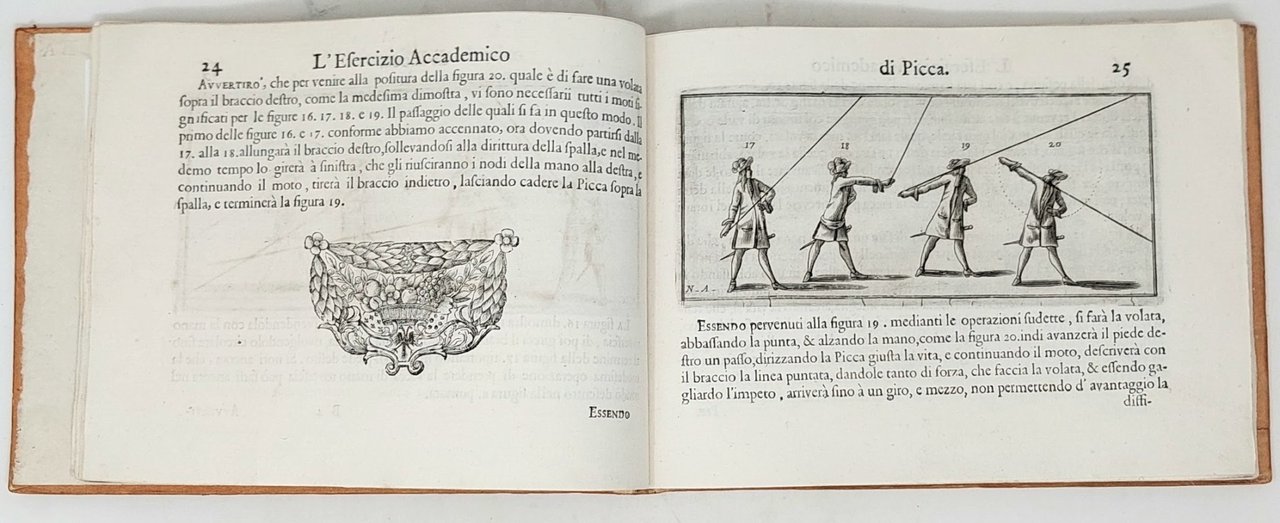 24
L'Eſercizio Accademico
AVVERTIRO', che per venire alla poſitura della figura 20. quale è di fare una volata
ſopra il braccio deſtro, come la medeſima dimoſtra, vi ſono neceſſarii tutti i moti ſi-
gnificati per le figure 16. 17. 18. e 19. Il paſſaggio delle quali ſi fa in queſto modo. Il
primo delle figure 16. e 17. conforme abbiamo accennato, ora dovendo partirſi dalla
17. alla 18. allungarà il braccio deſtro, ſollevandoſi alla dirittura della ſpalla, e nel me-
demo tempo lo girerà à ſiniſtra, che gli riuſciranno i nodi della mano alla deſtra, e
continuando il moto, tirerà il braccio indietro, laſciando cadere la Picca ſopra la
ſpalla, e terminerà la figura 19.
ESSENDO
di Picca.
25
17 18 19 20
N. A.
ESSENDO pervenuti alla figura 19. medianti le operazioni ſudette, ſi farà la volata,
abbaſſando la punta, & alzando la mano, come la figura 20. indi avanzerà il piede de-
ſtro un paſſo, dirizzando la Picca giuſta la vita, e continuando il moto, deſcriverà con
il braccio la linea puntata, dandole tanto di forza, che faccia la volata, & eſſendo ga-
gliardo l'impeto, arriverà ſino à un giro, e mezzo, non permettendo d' avantaggio la
diſti-